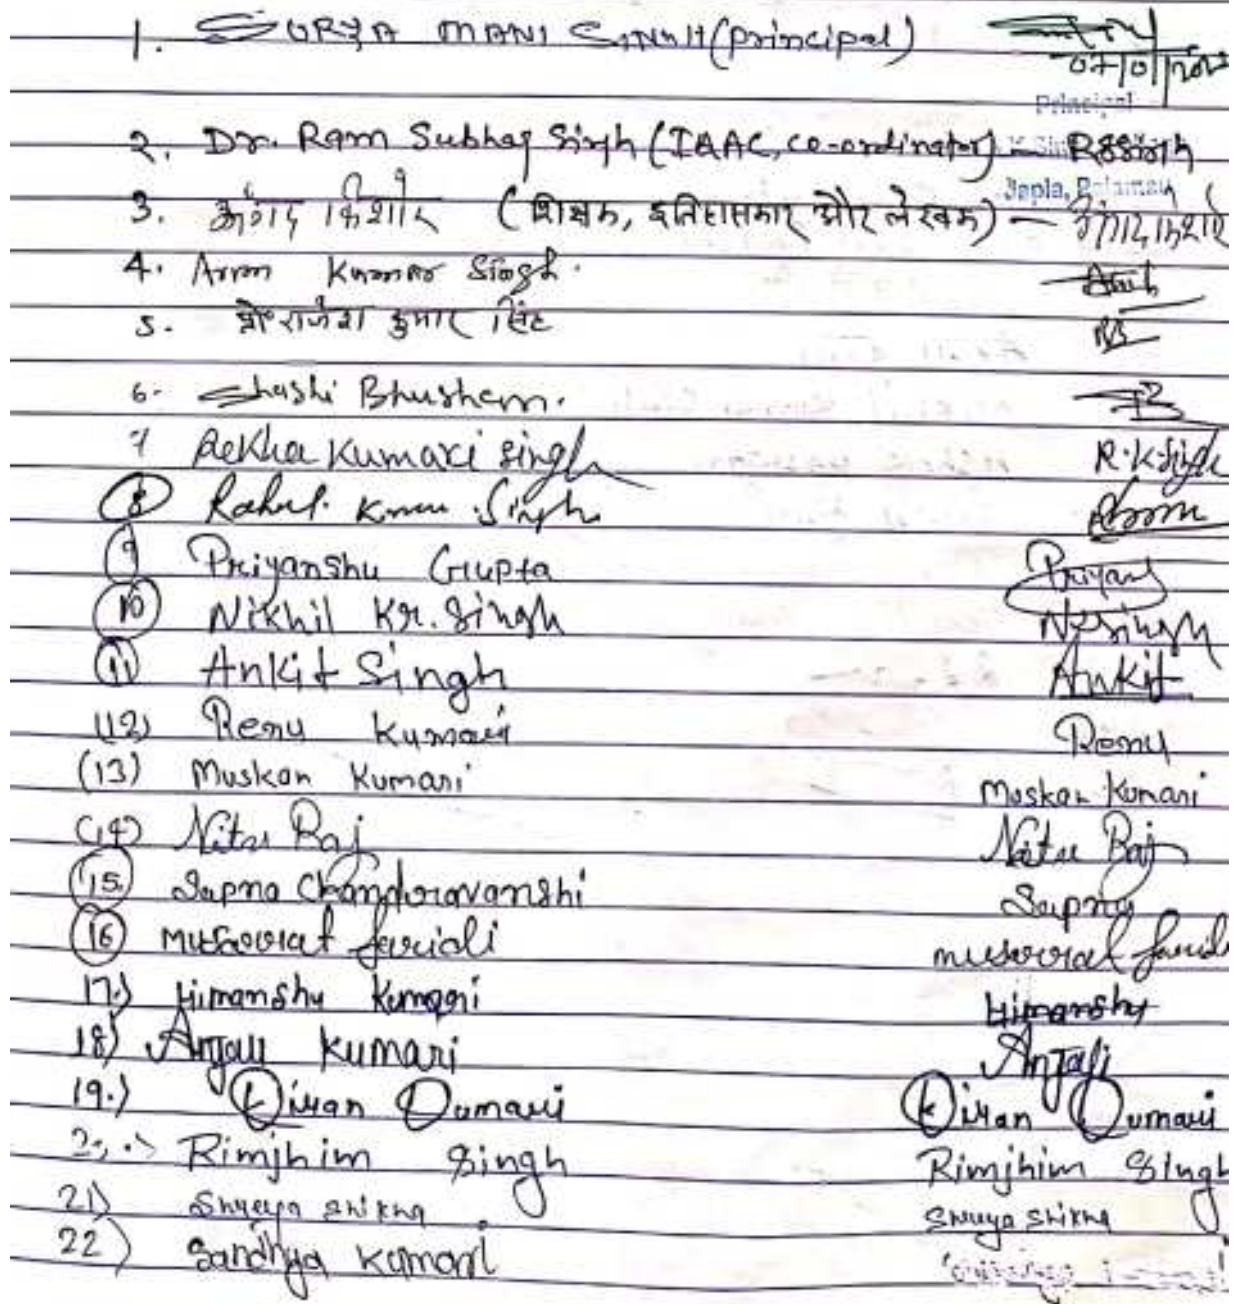 1. SURYA MANI SINGH (principal)
07/01/
Principal
2. Dr. Ram Subhag Singh (IAAC, co-ordinator) RSSingh
Japla, Palamau
3. अंगद किशोर (शिक्षक, इतिहासकार और लेखक) — अंगद किशोर
4. Arun Kumar Singh.
5. प्रो० राजेश कुमार सिंह RS
6. Shashi Bhushan. SB
7 Rekha Kumari Singh R.K.Singh
8 Rahul Kumar Singh
9 Priyanshu Gupta Priyans
10 Nikhil Kr. Singh NKSingh
11 Ankit Singh Ankit
(12) Renu Kumari Renu
(13) Muskan Kumari Muskan Kumari
(14) Nitu Raj Nitu Raj
15. Sapna Chandoravanshi Sapna
16 Musarrat faridi musarrat faridi
17.) Himanshu Kumari Himanshu
18) Anjali Kumari Anjali
19.) Kiran Kumari Kiran Kumari
20.) Rimjhim Singh Rimjhim Singh
21) Shreya Shikha Shreya Shikha
22) Sandhya Kumari